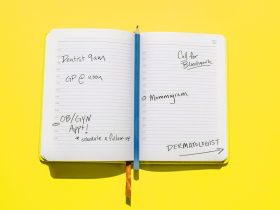 Dentist 9am
GP @ noon
OB/GYN
Appt!
* schedule a follow-up
Call for
Bloodwork
Mammogram
DERMATOLOGIST